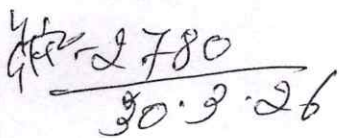 2780
30.3.26